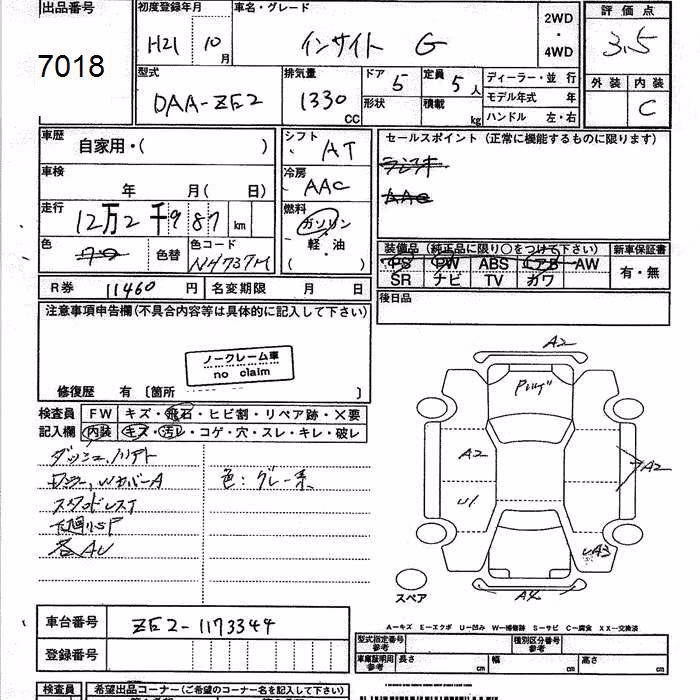 出品番号
7018
初度登録年月
H21 10月
車名・グレード
インサイト G
2WD
・
4WD
評価点
3.5
型式
DAA-ZE2
排気量
1330 CC
ドア 5
形状
定員 5人
積載 kg
ディーラー・並行
モデル年式 年
ハンドル 左・右
外装 内装
C
車歴
自家用・( )
シフト
AT
セールスポイント(正常に機能するものに限ります)
車検
年 月( 日)
冷房
AAC
AAC
走行
12万2千987km
燃料
ガソリン
・
軽・油
( )
色
色替
色コード
NH737M
装備品(純正品に限り○をつけて下さい)
新車保証書
PS PW ABS エアB AW
SR ナビ TV カワ
有・無
R券 11460円
名変期限 月 日
後日品
注意事項申告欄(不具合内容等は具体的に記入して下さい)
ノークレーム車
no claim
修復歴 有〔箇所 〕
検査員 FW キズ・飛石・ヒビ割・リペア跡・×要
記入欄 内装 キズ・汚レ・コゲ・穴・スレ・キレ・破レ
色:グレー系
各AU
A2
A2
U1
A2
A3
A4
スペア
A−キズ E−エクボ U−凹み W−補修跡 S−サビ C−腐食 XX−交換済
車台番号 ZE2-1173344
登録番号
型式指定番号
参考
種別区分番号
参考
車庫証明用
参考
長さ cm
幅 cm
高さ cm
検査員 希望出品コーナー(ご希望のコーナー名を記入して下さい)